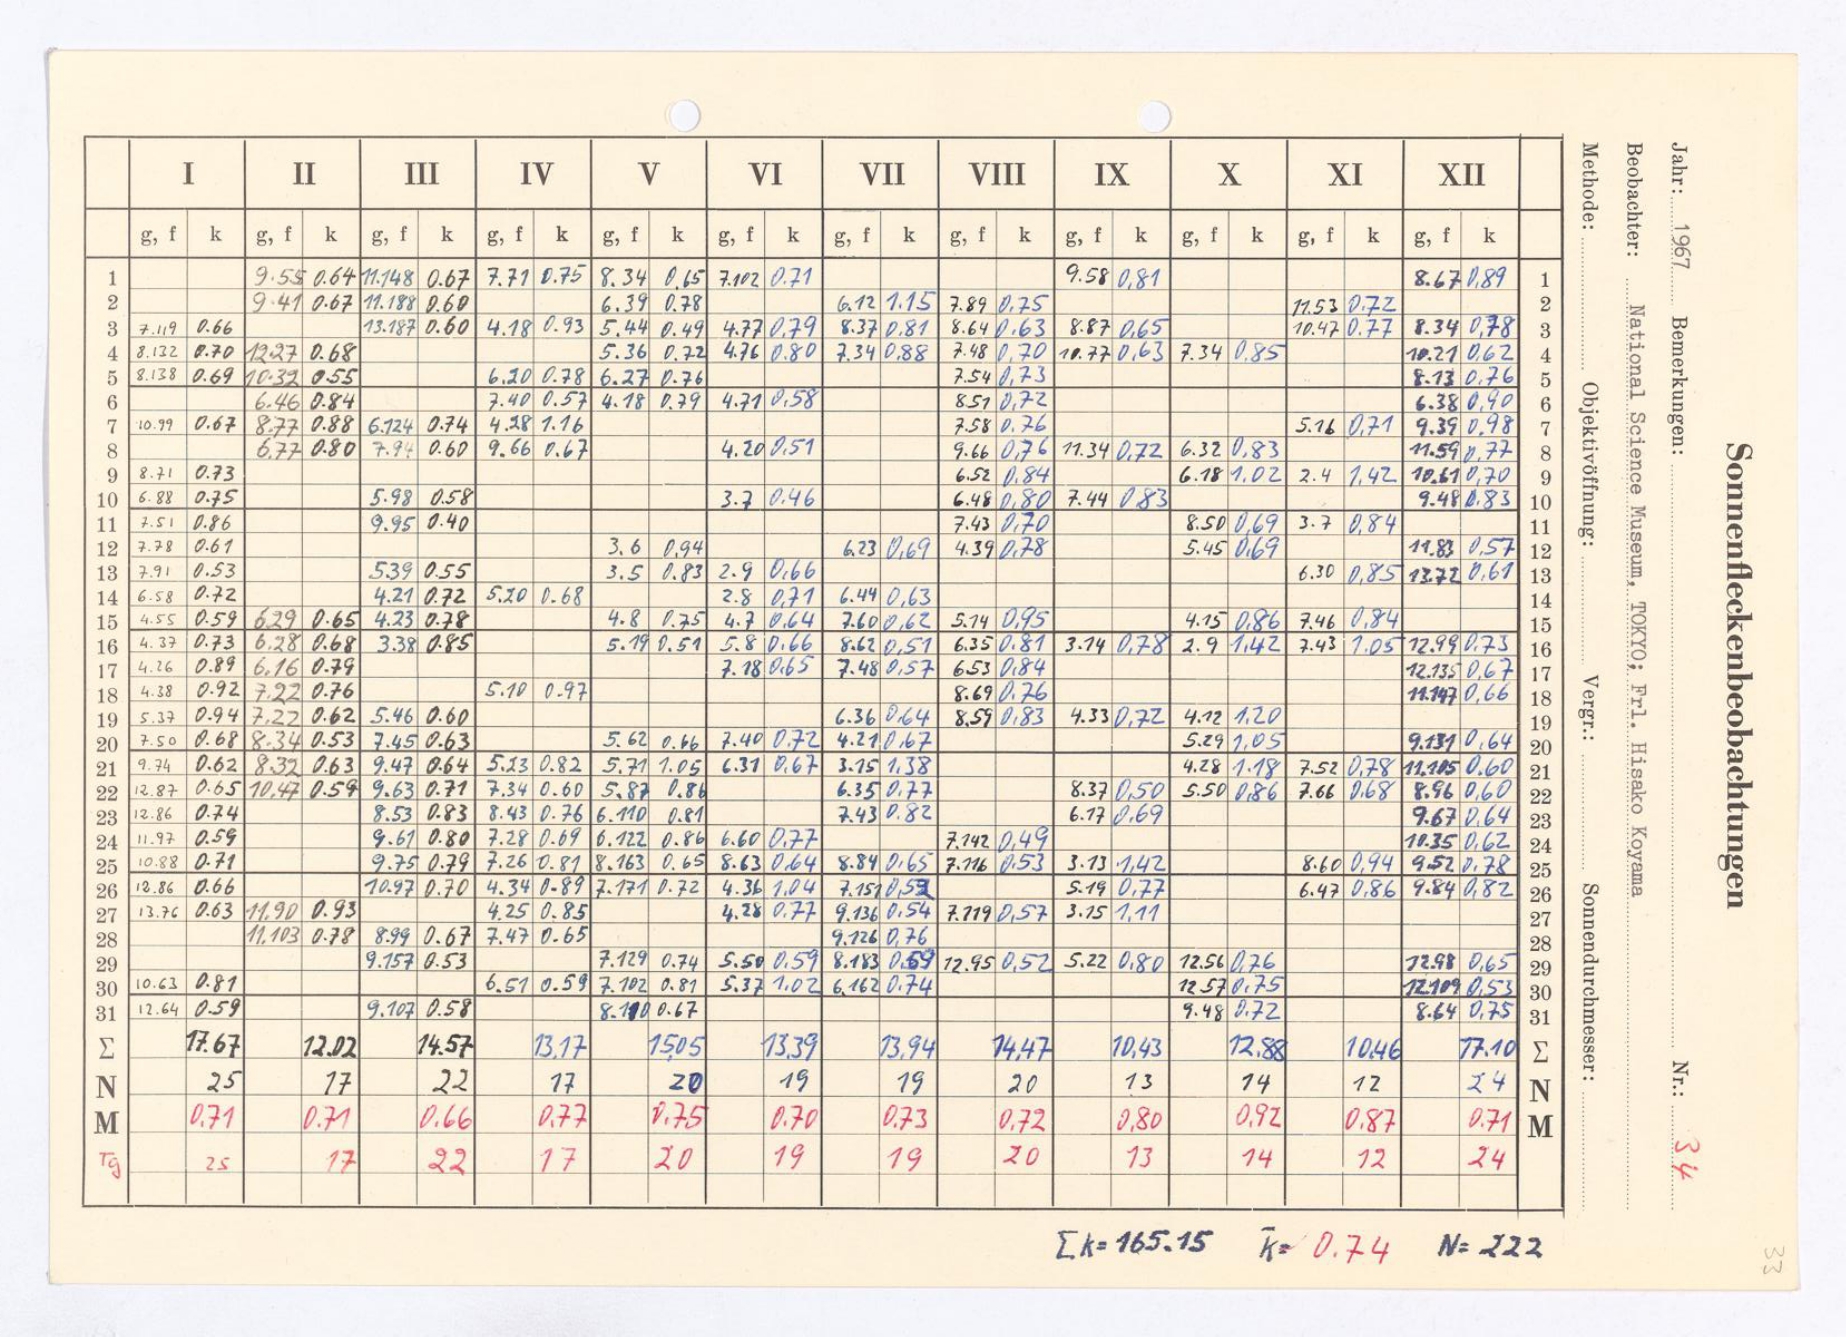 Sonnenfleckenbeobachtungen
Jahr: 1967 Bemerkungen: Nr.: 34
Beobachter: National Science Museum, TOKYO; Frl. Hisako Koyama
Methode: Objektivöffnung: Vergr.: Sonnendurchmesser:
I II III IV V VI VII VIII IX X XI XII
g, f k g, f k g, f k g, f k g, f k g, f k g, f k g, f k g, f k g, f k g, f k g, f k
1 9.55 0.64 11.148 0.67 7.71 0.75 8.34 0.65 7.102 0.71 9.58 0,81 8.67 0,89 1
2 9.41 0.67 11.188 0.60 6.39 0.78 6.12 1.15 7.89 0,75 11.53 0.72 2
3 7.119 0.66 13.187 0.60 4.18 0.93 5.44 0.49 4.77 0,79 8.37 0,81 8.64 0,63 8.87 0,65 10.47 0.77 8.34 0,78 3
4 8.132 0.70 12.27 0.68 5.36 0.72 4.76 0,80 7.34 0,88 7.48 0,70 10.77 0,63 7.34 0,85 10.21 0,62 4
5 8.138 0.69 10.32 0.55 6.20 0.78 6.27 0.76 7.54 0,73 8.13 0,76 5
6 6.46 0.84 7.40 0.57 4.18 0.79 4.71 0,58 8.51 0,72 6.38 0,90 6
7 10.99 0.67 8.77 0.88 6.124 0.74 4.28 1.16 7.58 0.76 5.16 0,71 9.39 0,98 7
8 6.77 0.80 7.94 0.60 9.66 0.67 4.20 0,51 9.66 0,76 11.34 0,72 6.32 0,83 11.59 0,77 8
9 8.71 0.73 6.52 0,84 6.18 1,02 2.4 1,42 10.61 0,70 9
10 6.88 0.75 5.98 0.58 3.7 0.46 6.48 0,80 7.44 0,83 9.48 0.83 10
11 7.51 0.86 9.95 0.40 7.43 0,70 8.50 0,69 3.7 0,84 11
12 7.78 0.61 3.6 0,94 6.23 0,69 4.39 0,78 5.45 0,69 11.83 0,57 12
13 7.91 0.53 5.39 0.55 3.5 0.83 2.9 0,66 6.30 0,85 13.72 0,61 13
14 6.58 0.72 4.21 0.72 5.20 0.68 2.8 0,71 6.44 0,63 14
15 4.55 0.59 6.29 0.65 4.23 0.78 4.8 0.75 4.7 0,64 7.60 0,62 5.14 0,95 4.15 0,86 7.46 0,84 15
16 4.37 0.73 6.28 0.68 3.38 0.85 5.19 0.51 5.8 0,66 8.62 0,51 6.35 0.81 3.14 0,78 2.9 1,42 7.43 1.05 12.99 0.73 16
17 4.26 0.89 6.16 0.79 7.18 0,65 7.48 0,57 6.53 0,84 12.135 0,67 17
18 4.38 0.92 7.22 0.76 5.10 0.97 8.69 0,76 11.147 0,66 18
19 5.37 0.94 7.22 0.62 5.46 0.60 6.36 0,64 8.59 0,83 4.33 0,72 4.12 1,20 19
20 7.50 0.68 8.34 0.53 7.45 0.63 5.62 0.66 7.40 0,72 4.21 0,67 5.29 1,05 9.131 0,64 20
21 9.74 0.62 8.32 0.63 9.47 0.64 5.23 0.82 5.71 1.05 6.31 0,67 3.15 1,38 4.28 1.18 7.52 0,78 11.105 0.60 21
22 12.87 0.65 10.47 0.59 9.63 0.71 7.34 0.60 5.87 0.86 6.35 0,77 8.37 0,50 5.50 0,86 7.66 0,68 8.96 0,60 22
23 12.86 0.74 8.53 0.83 8.43 0.76 6.110 0.81 7.43 0.82 6.17 0,69 9.67 0,64 23
24 11.97 0.59 9.61 0.80 7.28 0.69 6.122 0.86 6.60 0,77 7.142 0,49 10.35 0,62 24
25 10.88 0.71 9.75 0.79 7.26 0.81 8.163 0.65 8.63 0,64 8.84 0,65 7.116 0,53 3.13 1,42 8.60 0,94 9.52 0,78 25
26 12.86 0.66 10.97 0.70 4.34 0.89 7.171 0.72 4.36 1,04 7.151 5.19 0,77 6.47 0,86 9.84 0,82 26
27 13.76 0.63 11.90 0.93 4.25 0.85 4.28 0,77 9.136 0,54 7.119 0,57 3.15 1,11 27
28 11.103 0.78 8.99 0.67 7.47 0.65 9.126 0,76 28
29 9.157 0.53 7.129 0.74 5.50 0,59 8.183 12.95 0,52 5.22 0,80 12.56 0,76 12.98 0,65 29
30 10.63 0.81 6.51 0.59 7.102 0.81 5.37 1,02 6.162 0.74 12.57 0,75 12.109 0,53 30
31 12.64 0.59 9.107 0.58 0.67 9.48 0,72 8.64 0,75 31
Σ 17.67 12.02 14.57 13,17 15,05 13,39 13,94 14,47 10,43 12,88 10,46 17.10 Σ
N 25 17 22 17 20 19 19 20 13 14 12 24 N
M 0.71 0.71 0.66 0.77 0.75 0.70 0.73 0,72 0,80 0,92 0,87 0.71 M
Tg 25 17 22 17 20 19 19 20 13 14 12 24
Σk= 165.15 k̄= 0.74 N= 222
33